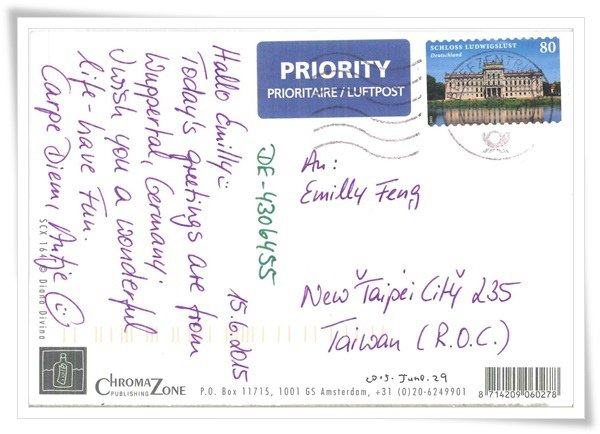 Hallo Emilly :
Today's greetings are from
Wuppertal, Germany.
I wish you a wonderful
life - have fun.
Carpe Diem, Antje
15.6.2015
DE-4306455
PRIORITY
PRIORITAIRE / LUFTPOST
SCHLOSS LUDWIGSLUST
Deutschland
80
An:
Emilly Feng
New Taipei City 235
Taiwan (R.O.C.)
2015. June. 29
SCX 164 © Diana Divino
CHROMAZONE
PUBLISHING
P.O. Box 11715, 1001 GS Amsterdam, +31 (0)20-6249901
8 714209 060278